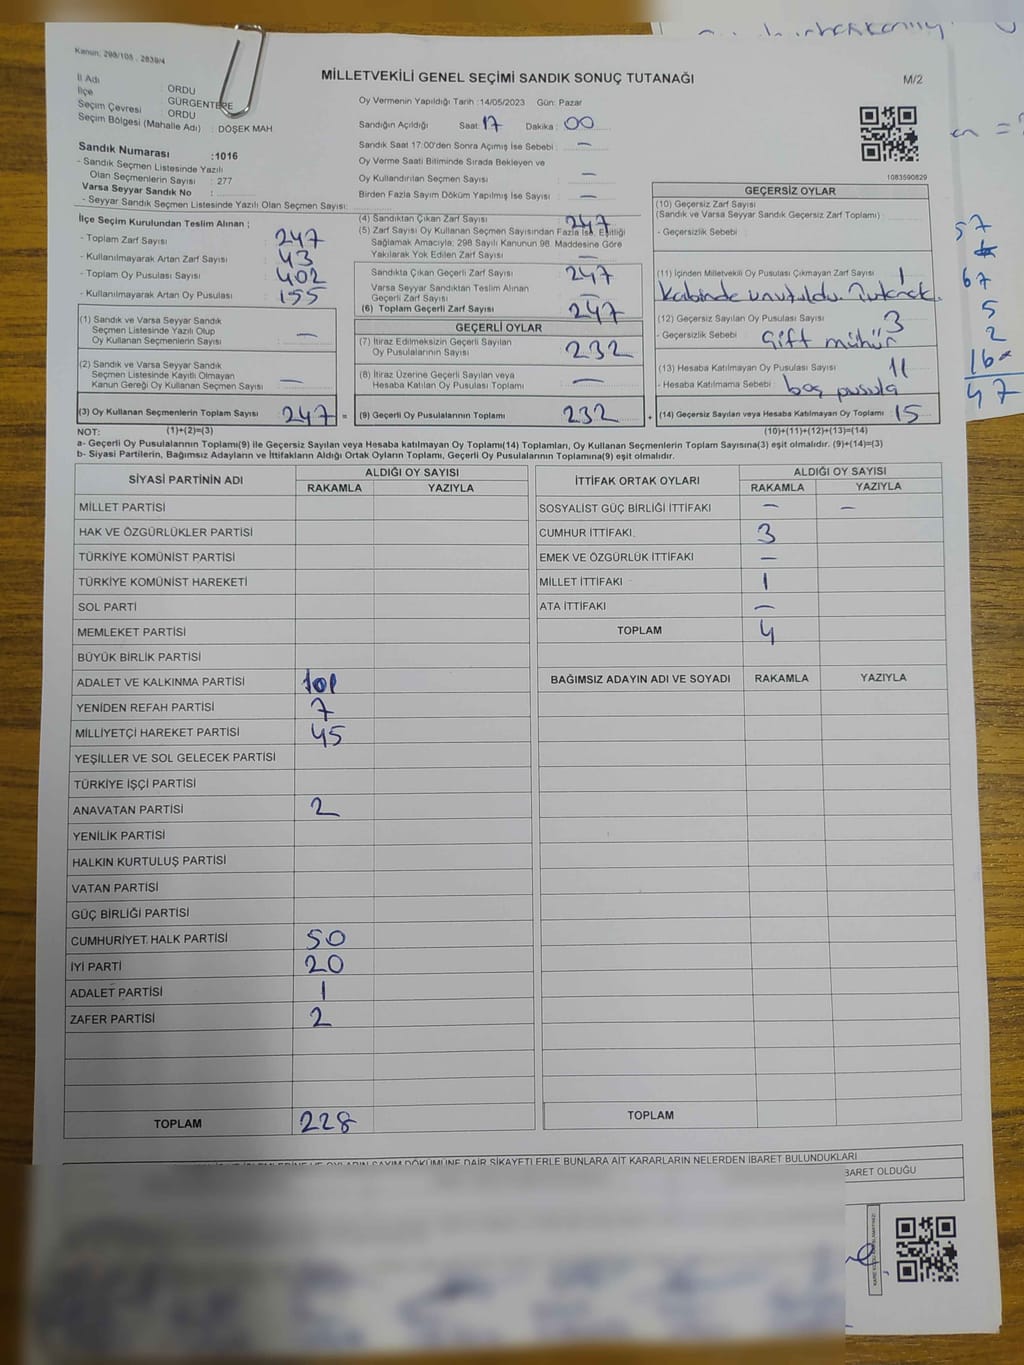 Kanun: 298/105 , 2839/4
MİLLETVEKİLİ GENEL SEÇİMİ SANDIK SONUÇ TUTANAĞI
M/2
İl Adı : ORDU
İlçe : GÜRGENTEPE
Seçim Çevresi : ORDU
Seçim Bölgesi (Mahalle Adı) : DÖŞEK MAH
Sandık Numarası :1016
- Sandık Seçmen Listesinde Yazılı
Olan Seçmenlerin Sayısı : 277
Varsa Seyyar Sandık No :
- Seyyar Sandık Seçmen Listesinde Yazılı Olan Seçmen Sayısı:
İlçe Seçim Kurulundan Teslim Alınan ;
- Toplam Zarf Sayısı : 247
- Kullanılmayarak Artan Zarf Sayısı : 43
- Toplam Oy Pusulası Sayısı : 402
- Kullanılmayarak Artan Oy Pusulası : 155
(1) Sandık ve Varsa Seyyar Sandık
Seçmen Listesinde Yazılı Olup
Oy Kullanan Seçmenlerin Sayısı : —
(2) Sandık ve Varsa Seyyar Sandık
Seçmen Listesinde Kayıtlı Olmayan
Kanun Gereği Oy Kullanan Seçmen Sayısı : —
(3) Oy Kullanan Seçmenlerin Toplam Sayısı : 247
Oy Vermenin Yapıldığı Tarih :14/05/2023 Gün: Pazar
Sandığın Açıldığı Saat: 17 Dakika : 00
Sandık Saat 17:00'den Sonra Açımış İse Sebebi : —
Oy Verme Saati Bitiminde Sırada Bekleyen ve
Oy Kullandırılan Seçmen Sayısı : —
Birden Fazla Sayım Döküm Yapılmış İse Sayısı : —
(4) Sandıktan Çıkan Zarf Sayısı : 247
(5) Zarf Sayısı Oy Kullanan Seçmen Sayısından Fazla İse, Eşitliği
Sağlamak Amacıyla; 298 Sayılı Kanunun 98. Maddesine Göre
Yakılarak Yok Edilen Zarf Sayısı : —
Sandıkta Çıkan Geçerli Zarf Sayısı : 247
Varsa Seyyar Sandıktan Teslim Alınan
Geçerli Zarf Sayısı : —
(6) Toplam Geçerli Zarf Sayısı : 247
GEÇERLİ OYLAR
(7) İtiraz Edilmeksizin Geçerli Sayılan
Oy Pusulalarının Sayısı : 232
(8) İtiraz Üzerine Geçerli Sayılan veya
Hesaba Katılan Oy Pusulası Toplamı : —
= (9) Geçerli Oy Pusulalarının Toplamı : 232
1083590829
GEÇERSİZ OYLAR
(10) Geçersiz Zarf Sayısı
(Sandık ve Varsa Seyyar Sandık Geçersiz Zarf Toplamı) :
- Geçersizlik Sebebi :
(11) İçinden Milletvekili Oy Pusulası Çıkmayan Zarf Sayısı : 1
Kabinde unutuldu. Tutanak.
(12) Geçersiz Sayılan Oy Pusulası Sayısı : 3
- Geçersizlik Sebebi : Çift mühür
(13) Hesaba Katılmayan Oy Pusulası Sayısı : 11
- Hesaba Katılmama Sebebi : boş pusula
+ (14) Geçersiz Sayılan veya Hesaba Katılmayan Oy Toplamı : 15
NOT: (1)+(2)=(3)
(10)+(11)+(12)+(13)=(14)
a- Geçerli Oy Pusulalarının Toplamı(9) ile Geçersiz Sayılan veya Hesaba katılmayan Oy Toplamı(14) Toplamları, Oy Kullanan Seçmenlerin Toplam Sayısına(3) eşit olmalıdır. (9)+(14)=(3)
b- Siyasi Partilerin, Bağımsız Adayların ve İttifakların Aldığı Ortak Oyların Toplamı, Geçerli Oy Pusulalarının Toplamına(9) eşit olmalıdır.
SİYASİ PARTİNİN ADI ALDIĞI OY SAYISI
RAKAMLA YAZIYLA
MİLLET PARTİSİ
HAK VE ÖZGÜRLÜKLER PARTİSİ
TÜRKİYE KOMÜNİST PARTİSİ
TÜRKİYE KOMÜNİST HAREKETİ
SOL PARTİ
MEMLEKET PARTİSİ
BÜYÜK BİRLİK PARTİSİ
ADALET VE KALKINMA PARTİSİ 101
YENİDEN REFAH PARTİSİ 7
MİLLİYETÇİ HAREKET PARTİSİ 45
YEŞİLLER VE SOL GELECEK PARTİSİ
TÜRKİYE İŞÇİ PARTİSİ
ANAVATAN PARTİSİ 2
YENİLİK PARTİSİ
HALKIN KURTULUŞ PARTİSİ
VATAN PARTİSİ
GÜÇ BİRLİĞİ PARTİSİ
CUMHURİYET HALK PARTİSİ 50
İYİ PARTİ 20
ADALET PARTİSİ 1
ZAFER PARTİSİ 2
TOPLAM 228
İTTİFAK ORTAK OYLARI ALDIĞI OY SAYISI
RAKAMLA YAZIYLA
SOSYALİST GÜÇ BİRLİĞİ İTTİFAKI — —
CUMHUR İTTİFAKI 3
EMEK VE ÖZGÜRLÜK İTTİFAKI —
MİLLET İTTİFAKI 1
ATA İTTİFAKI —
TOPLAM 4
BAĞIMSIZ ADAYIN ADI VE SOYADI RAKAMLA YAZIYLA
TOPLAM
OYLARIN SAYIM DÖKÜMÜNE DAİR ŞİKAYETLERLE BUNLARA AİT KARARLARIN NELERDEN İBARET BULUNDUKLARI
İBARET OLDUĞU
57
67
5
2
16
47